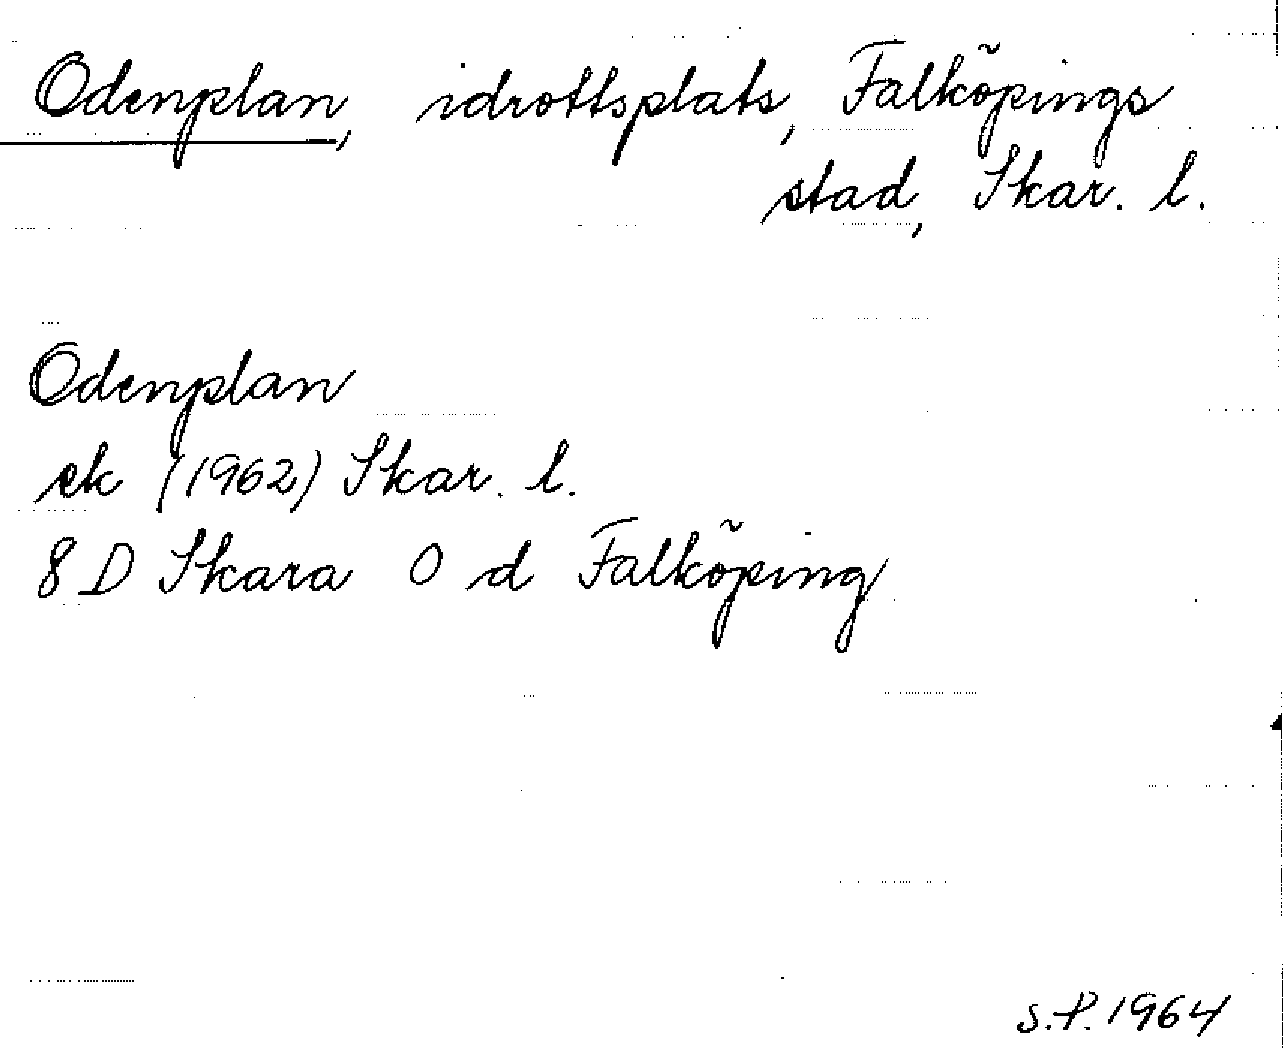 Odenplan, idrottsplats, Falköpings
stad, Skar. l.
Odenplan
ek (1962) Skar. l.
8 D Skara 0 d Falköping
S.P. 1964